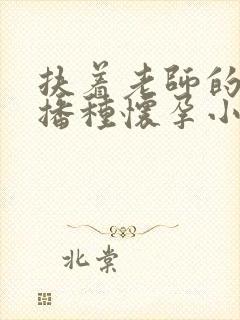 扶着老师的
播種懷孕小
北棠